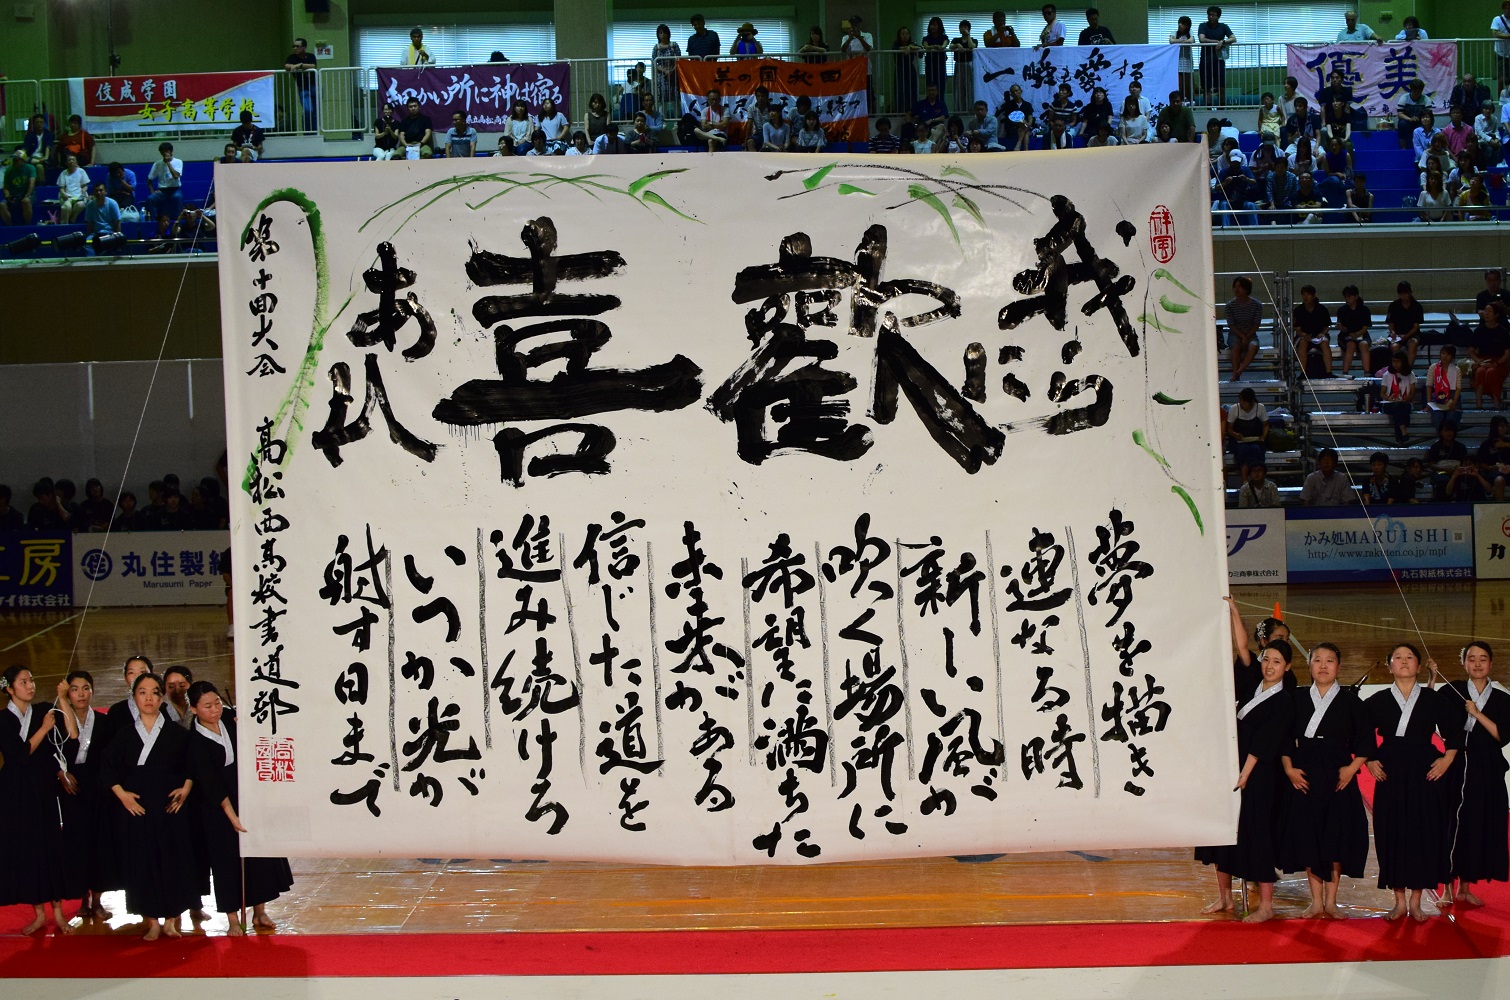 佼成学園
女子高等学校
細かい所に神は宿る
美の国秋田
優美
祥風
我らに
歓
喜
あれ
夢を描き
連なる時
新しい風が
吹く場所に
希望に満ちた
未来がある
信じた道を
進み続けろ
いつか光が
射す日まで
第十回大会 高松西高校書道部
丸住製紙
Marusumi Paper
かみ処MARUISHI
http://www.rakuten.co.jp/mpf
丸石製紙株式会社